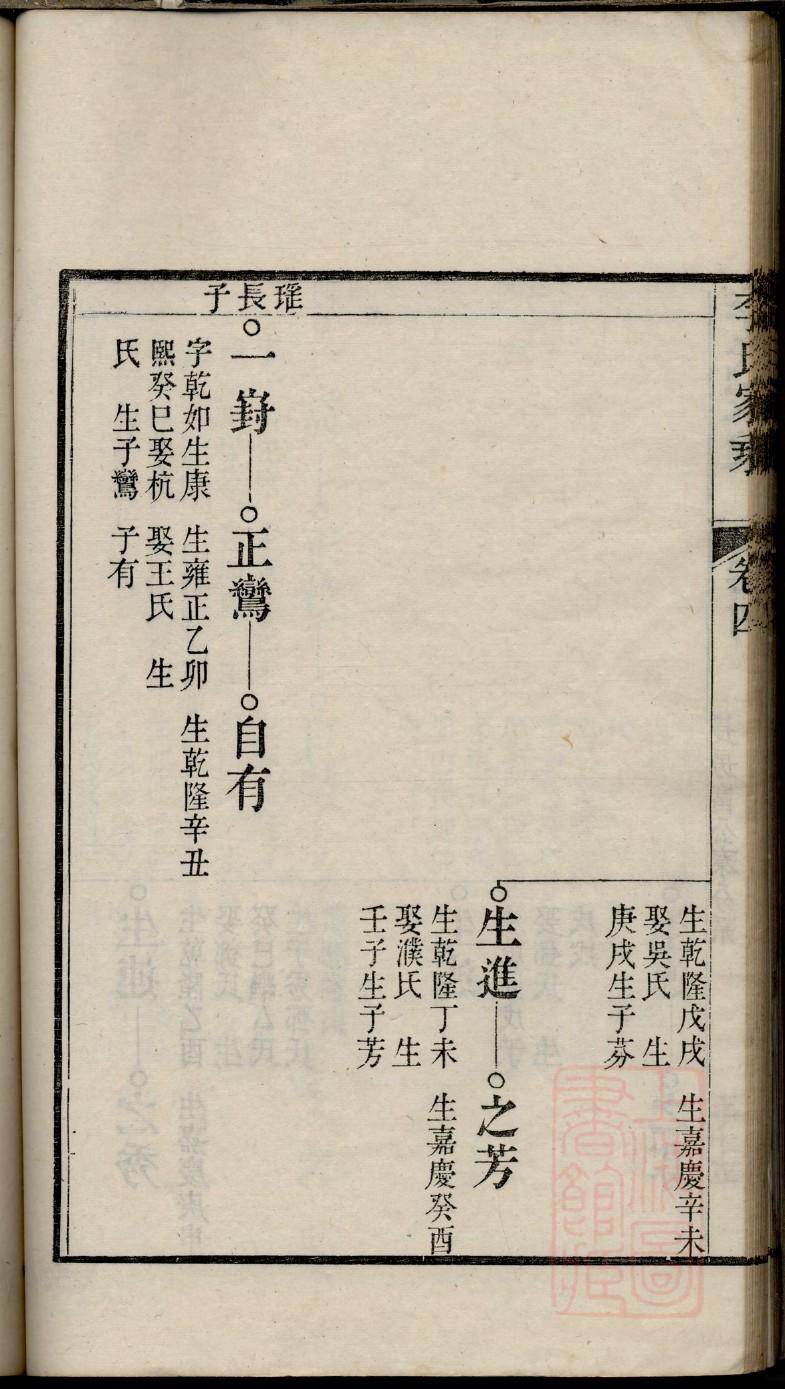 李氏家乘 卷四
生乾隆戊戌 生嘉慶辛未
娶吳氏 生
庚戌生子芬
生進 之芳
生乾隆丁未 生嘉慶癸酉
娶濮氏 生
壬子生子芳
瑤長子
一崶 正鸞 自有
字乾如生康 生雍正乙卯 生乾隆辛丑
熙癸巳娶杭 娶王氏 生
氏 生子鸞 子有